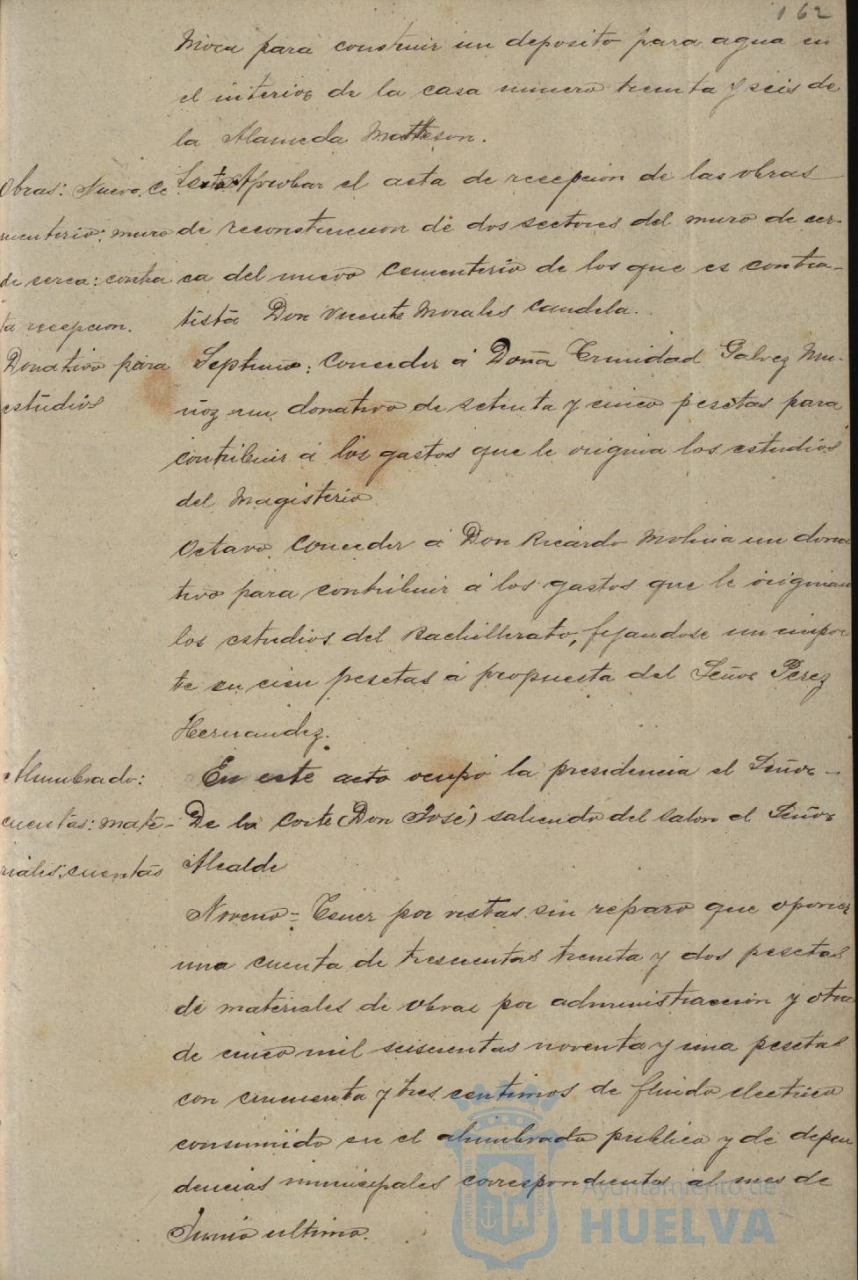 162
Moca para construir un deposito para agua en
el interior de la casa numero treinta y seis de
la Alameda Mattheson.
Obras: Nuevo Ce
menterio: muro
de cerca: contra
ta recepcion.
Sexto: Aprobar el acta de recepcion de las obras
de reconstruccion de dos sectores del muro de cer-
ca del nuevo Cementerio de los que es contra-
tista Don Vicente Morales Candela.
Donativo para
estudios
Septimo: Conceder á Doña Trinidad Galvez Mu-
ñoz un donativo de setenta y cinco pesetas para
contribuir á los gastos que le origina los estudios
del Magisterio
Octavo. Conceder á Don Ricardo Molina un dona
tivo para contribuir á los gastos que le originan
los estudios del Bachillerato, fijandose un impor
te en cien pesetas á propuesta del Señor Perez
Hernandez.
Alumbrado:
cuentas: mate-
riales: cuentas
En este acto ocupó la presidencia el Señor
De la Corte (Don José) saliendo del salon el Señor
Alcalde
Noveno = Tener por vistas sin reparo que oponer
una cuenta de trescientas treinta y dos pesetas
de materiales de obras por administracción y otra
de cinco mil seiscientas noventa y una pesetas
con cincuenta y tres centimos de fluido electrico
consumido en el alumbrado publico y de depen
dencias municipales correspondientes al mes de
Junio ultimo.
Ayuntamiento de
HUELVA